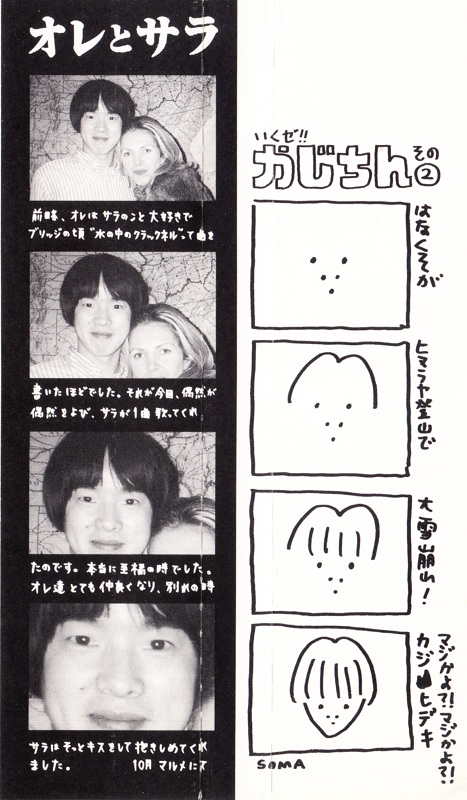 オレとサラ
前略、オレはサラのこと大好きで
ブリッジの頃"水の中のクラックネル"って曲を
書いたほどでした。それが今回、偶然が
偶然をよび、サラが1曲歌ってくれ
たのです。本当に至福の時でした。
オレ達とても仲良くなり、別れの時
サラはそっとキスをして抱きしめてくれ
ました。 10月 マルメにて
いくゼ!!
かじちん その②
はなくそが
ヒマラヤ登山で
大雪崩れ!
マジかよ?!マジかよ?!
カジヒデキ
SOMA